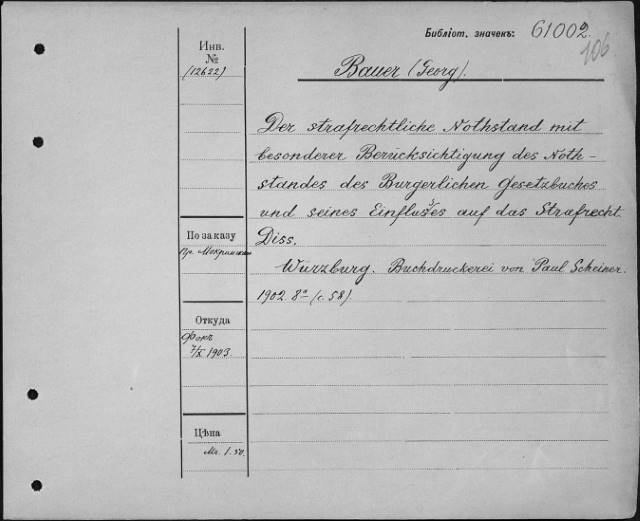 Библіот. значекъ: 61002
106
Инв.
№
(12622)
Bauer (Georg).
Der strafrechtliche Nothstand mit
besonderer Berücksichtigung des Noth-
standes des Burgerlichen Gesetzbuches
und seines Einflusses auf das Strafrecht.
Diss.
Würzburg. Buchdruckerei von Paul Scheiner.
1902. 8° (с. 58).
По заказу
Пр.
Откуда
Фокъ
7/X 1903.
Цѣна
Mk. 1.50.